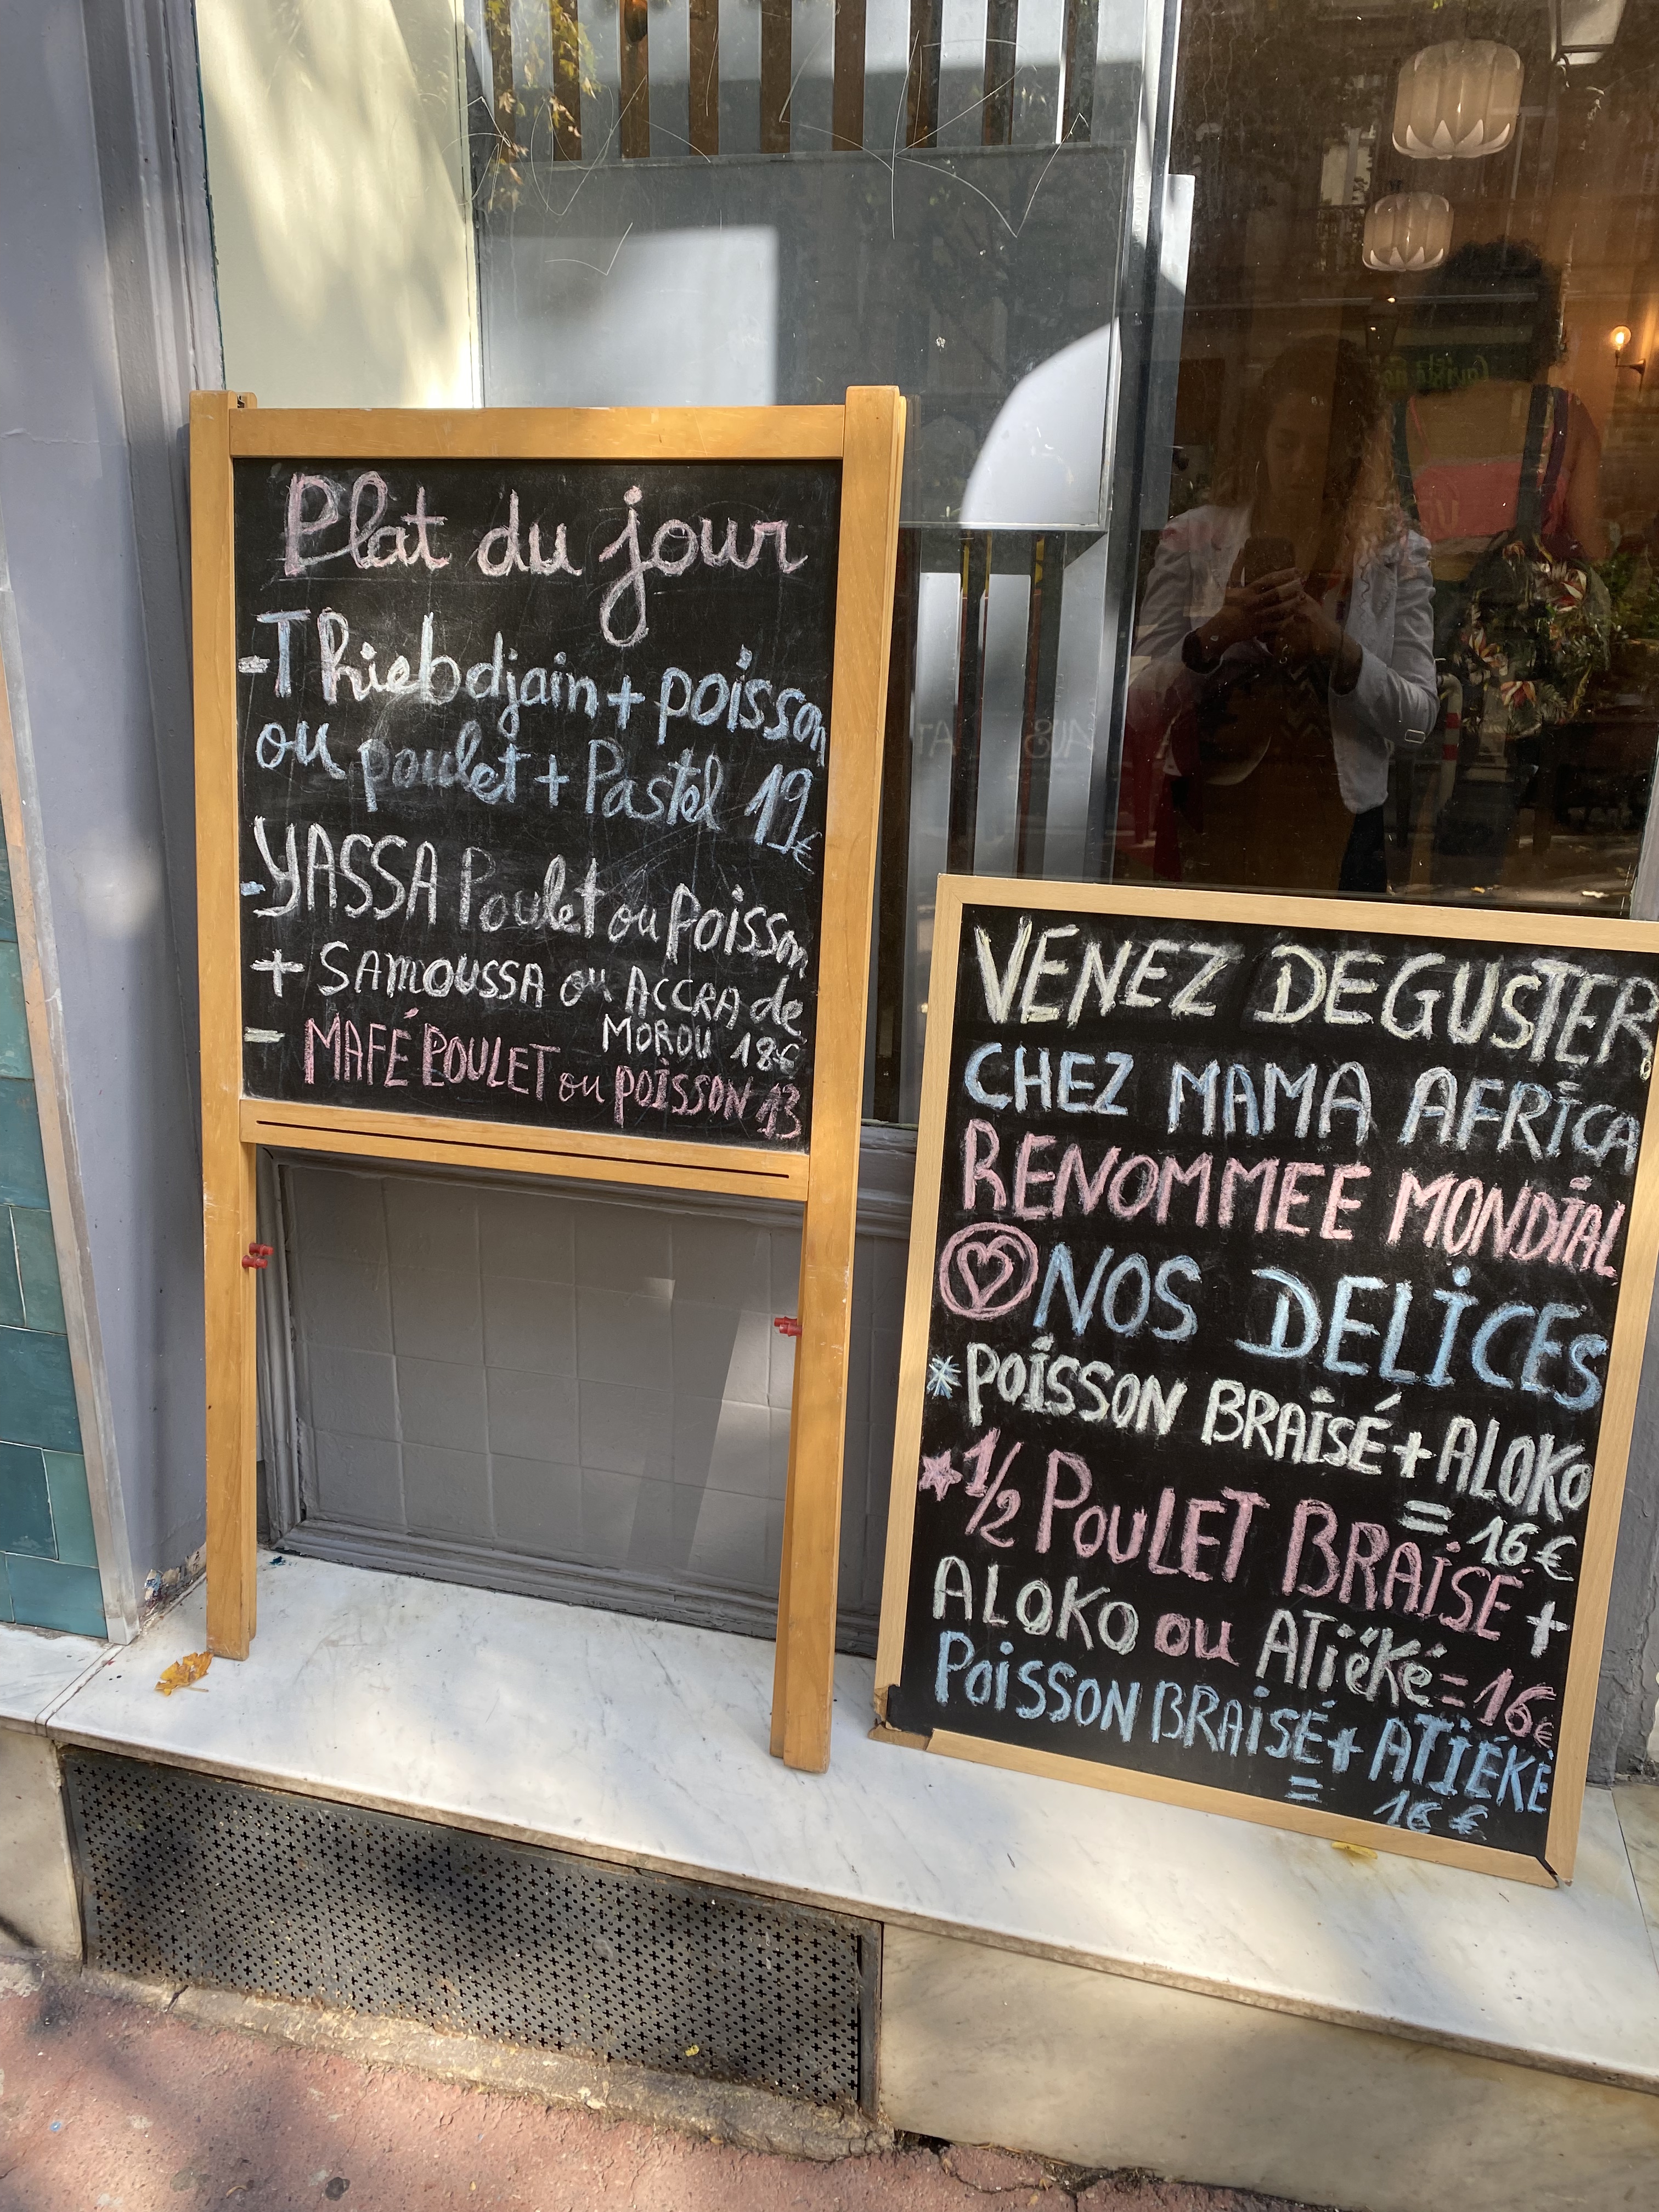 Plat du jour
-Thiebdjain + poisson
ou poulet + Pastel 19€
-YASSA Poulet ou poisson
+ SAMOUSSA ou ACCRA de
MOROU 18€
- MAFÉ POULET ou POISSON 13
VENEZ DEGUSTER
CHEZ MAMA AFRICA
RENOMMEE MONDIAL
NOS DELICES
*POISSON BRAISÉ + ALOKO
= 16€
1/2 POULET BRAISÉ +
ALOKO ou ATiéKé = 16€
POISSON BRAISÉ + ATIÉKÉ
= 16 €